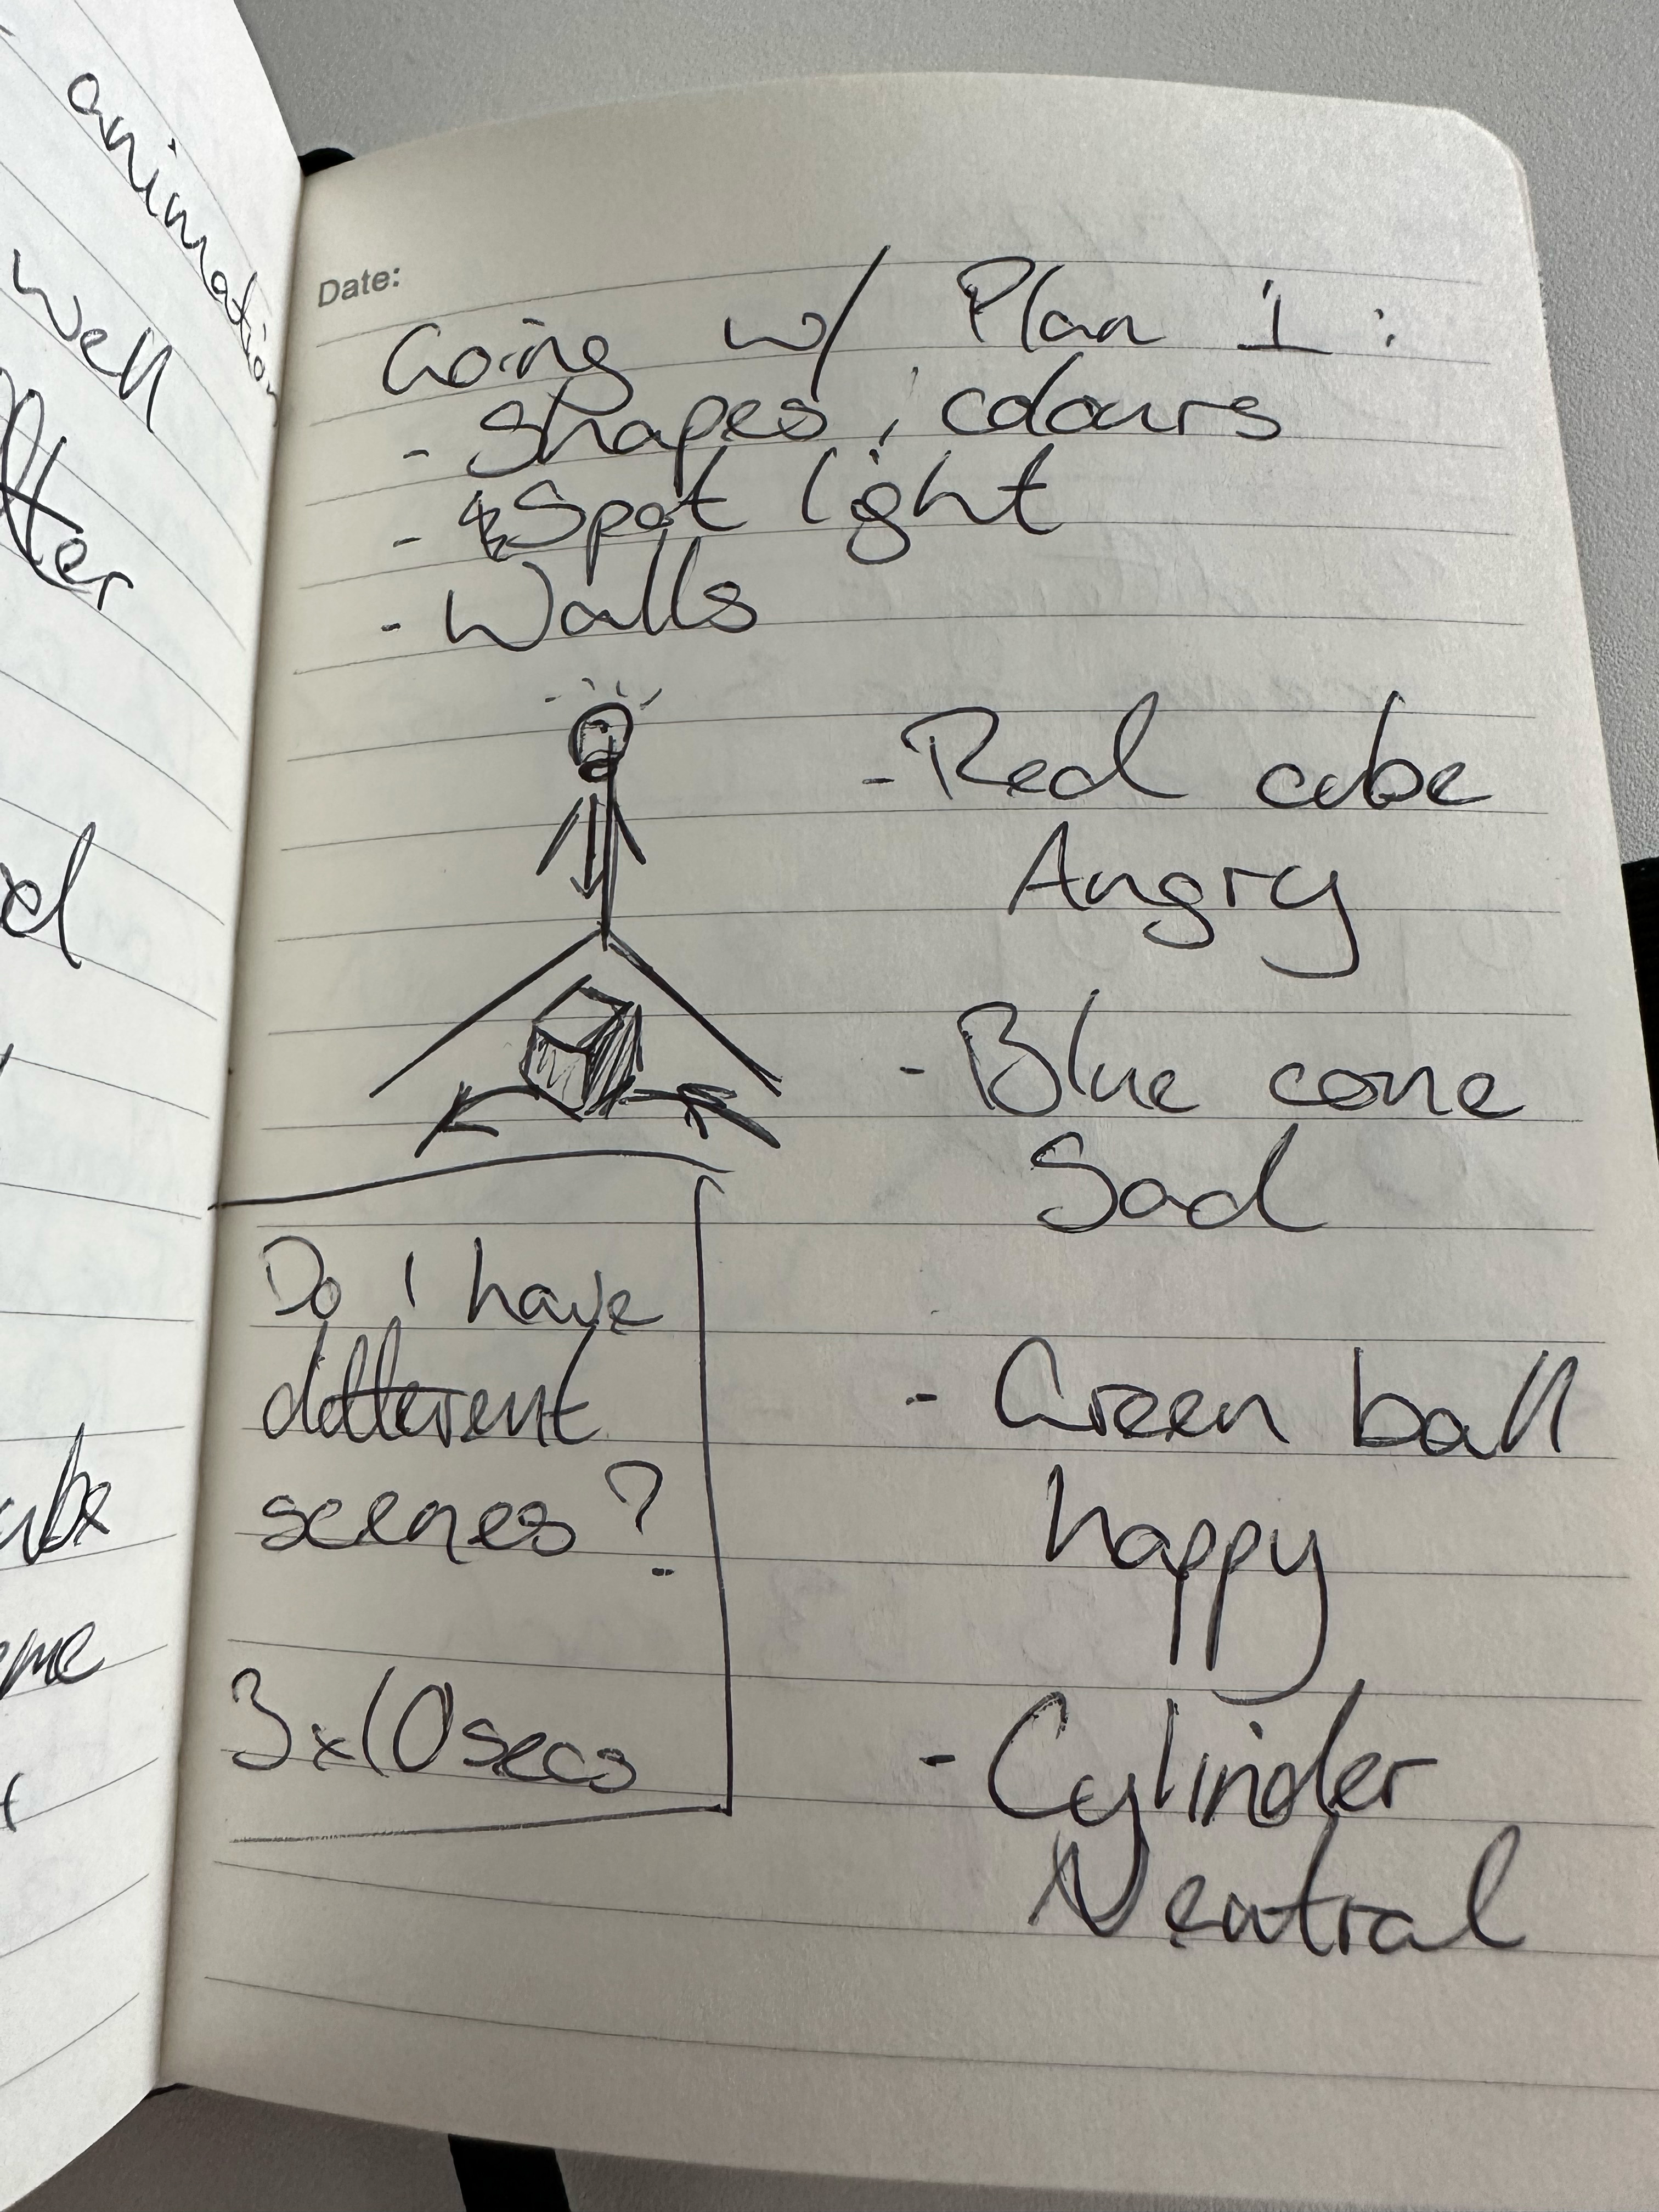 animation
well
Date:
Going w/ Plan 1:
- Shapes, colours
- Spot light
- Walls
- Red cube
Angry
- Blue cone
Sad
Do I have
different
scenes?
3x10secs
- Green ball
happy
- Cylinder
Neutral